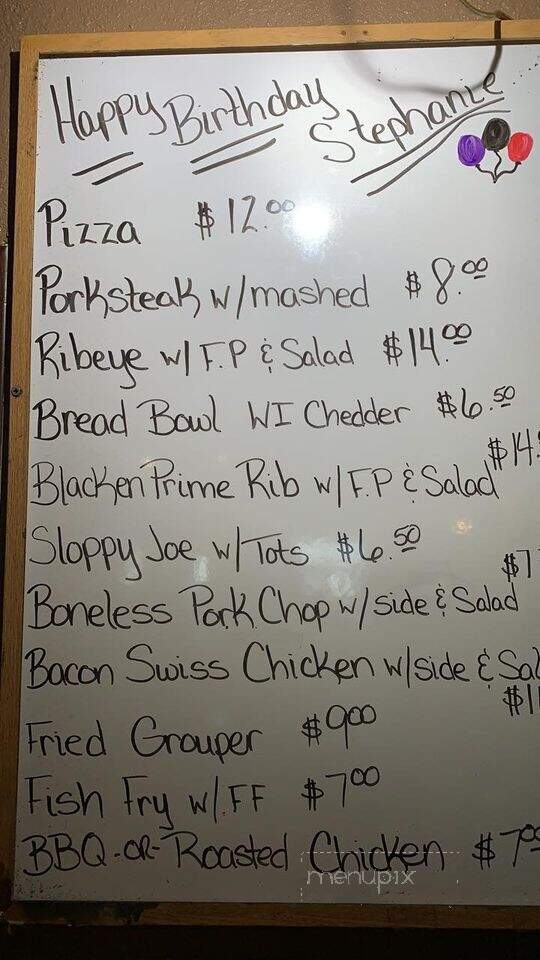 Happy Birthday Stephanie
Pizza $12.00
Porksteak w/mashed $8.00
Ribeye w/ F.P & Salad $14.00
Bread Bowl WI Chedder $6.50
$14.
Blacken Prime Rib w/ F.P & Salad
Sloppy Joe w/Tots $6.50
$7
Boneless Pork Chop w/side & Salad
Bacon Swiss Chicken w/side & Sal
Fried Grouper $9.00
Fish Fry w/.FF $7.00
BBQ-or-Roasted Chicken $7.00
menupix